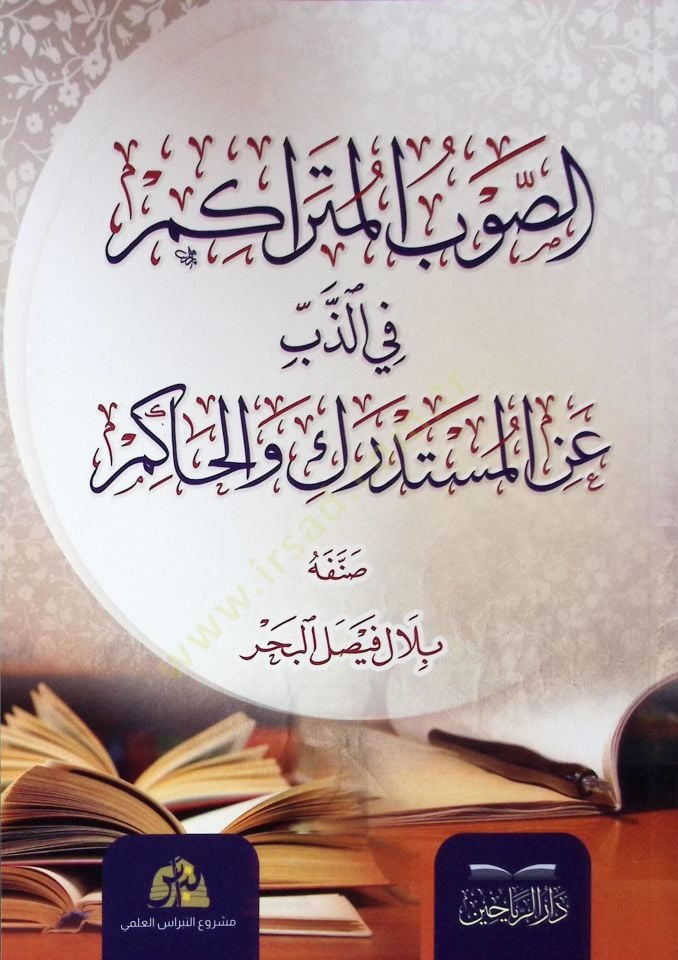 الصَّوْبُ الْمُتَرَاكِمْ
فِي الذَّبِّ
عَنِ الْمُسْتَدْرَكِ وَالْحَاكِمْ
صَنَّفَهُ
بِلَال فَيْصَل الْبَحْر
نبراس
مشروع النبراس العلمي
دَارُ الرَّيَاحِين